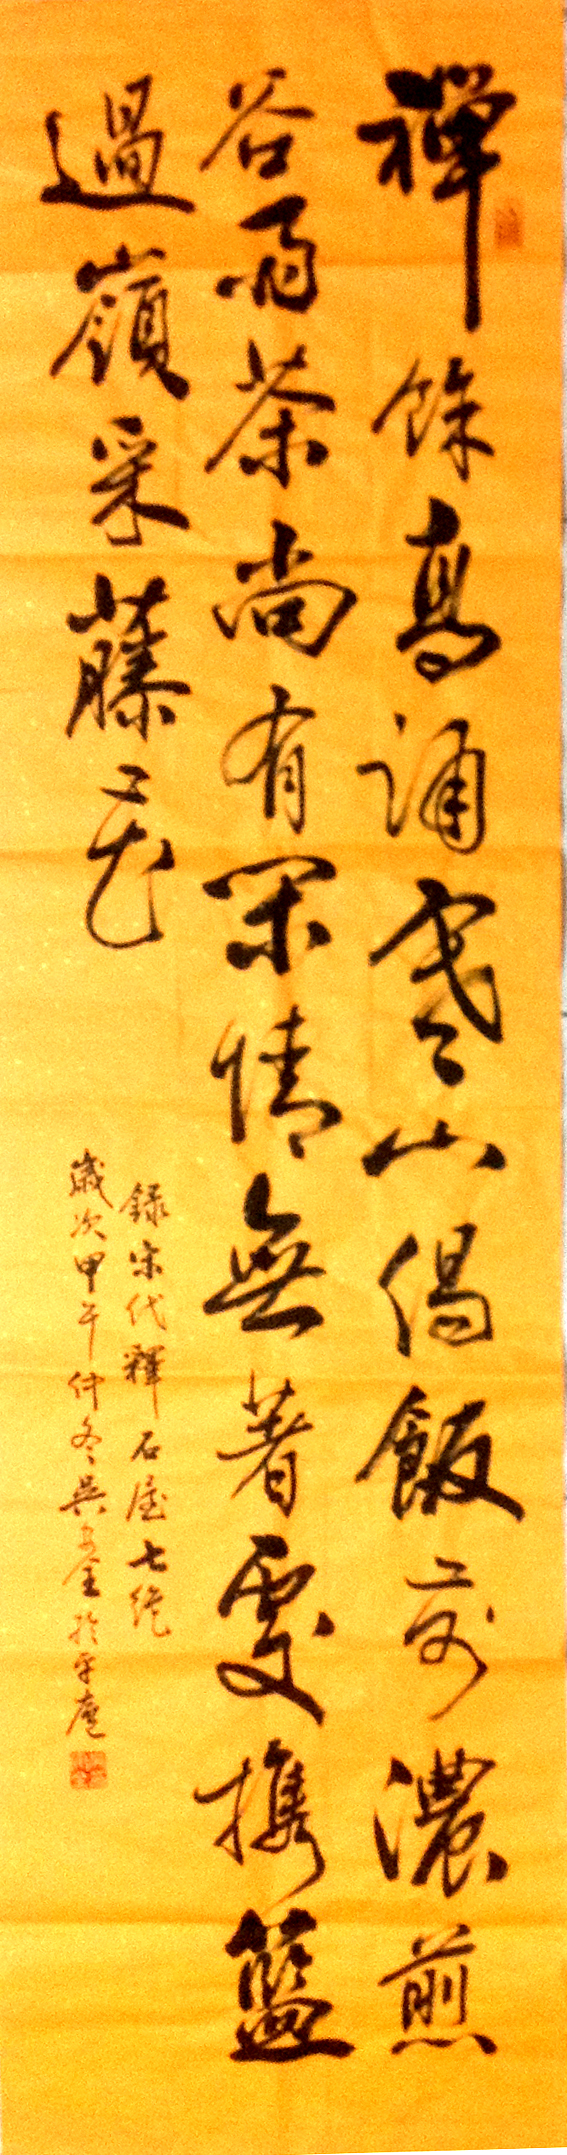 禪餘高誦寒山偈飯前濃煎
谷雨茶尚有閑情無著處携籃
過嶺采藤花
錄宋代釋石屋七絕
歲次甲午仲冬吳金於平庵